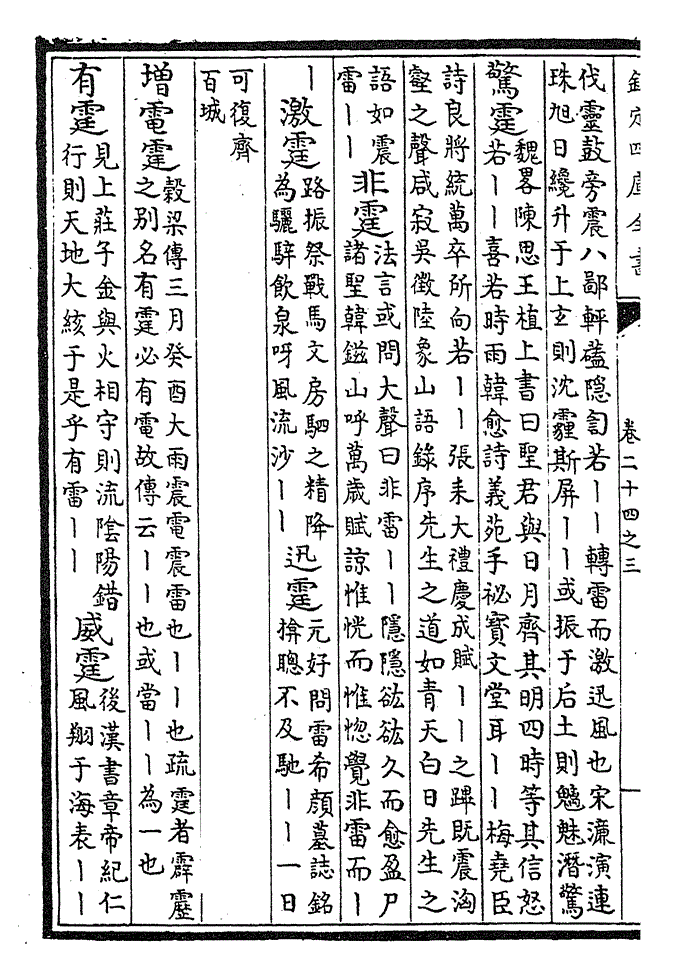 欽定四庫全書
卷二十四之三
一
伐靈鼓旁震八鄙軯磕隐訇若丨丨轉雷而激迅風也宋濂演連
珠旭日纔升于上玄則沈霾斯屏丨丨或振于后土則魑魅潛驚
驚霆
魏畧陳思王植上書曰聖君與日月齊其明四時等其信怒
若丨丨喜若時雨韓愈詩義苑手祕寳文堂耳丨丨梅堯臣
詩良將統萬卒所向若丨丨張耒大禮慶成賦丨丨之蹕既震洶
壑之聲咸寂吳徵陸象山語錄序先生之道如青天白日先生之
語如震
雷丨丨
非霆
法言或問大聲曰非雷丨丨隱隱耾耾久而愈盈尸
諸聖韓鎡山呼萬歳賦諒惟恍而惟惚覺非雷而丨
丨
激霆
路振祭戰馬文房駟之精降
為驪騂飲泉呀風流沙丨丨
迅霆
元好問雷希顔墓誌銘
揜聰不及馳丨丨一日
可復齊
百城
增電霆
穀梁傳三月癸酉大雨震電震雷也丨丨也疏霆者霹靂
之别名有霆必有電故傳云丨丨也或當丨丨為一也
有霆
見上莊子金與火相守則流陰陽錯
行則天地大絯于是乎有雷丨丨
威霆
後漢書章帝紀仁
風翔于海表丨丨